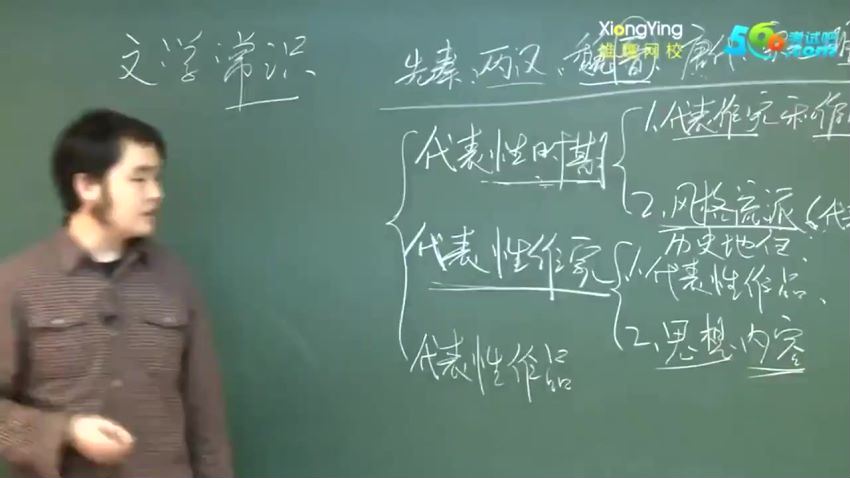 XiongYing
雄鹰网校
566考试吧
.com
文学常识
先秦、两汉、魏晋、唐代、
代表性时期
1、代表作家和作
2、风格流派(代表
代表性作家
历史地位:
1、代表性作品、
2、思想、内容
代表性作品